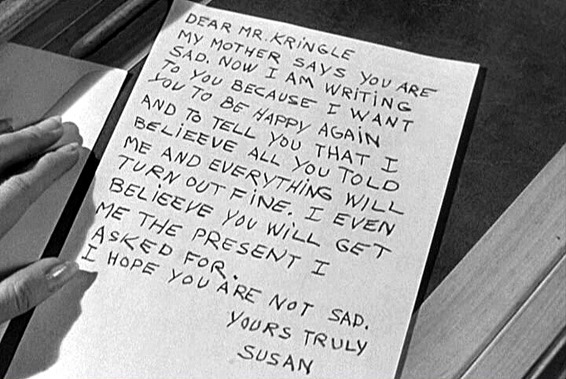 DEAR MR. KRINGLE
MY MOTHER SAYS YOU ARE
SAD. NOW I AM WRITING
TO YOU BECAUSE I WANT
YOU TO BE HAPPY AGAIN
AND TO TELL YOU THAT I
BELIEEVE ALL YOU TOLD
ME AND EVERYTHING WILL
TURN OUT FINE. I EVEN
BELIEEVE YOU WILL GET
ME THE PRESENT I
ASKED FOR.
I HOPE YOU ARE NOT SAD.
YOURS TRULY
SUSAN